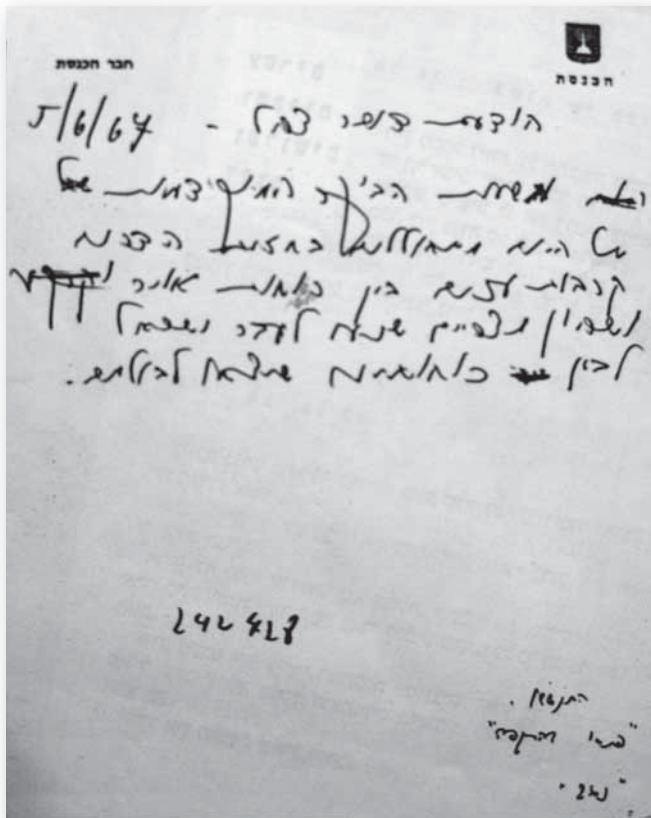 חבר הכנסת
הכנסת
הודעת דובר צהל - 5/6/67
משעות הבוקר המוקדמות של
היום מתחוללים בחזית הדרום
קרבות עזים בין כוחות אויר
ושריון מצריים שנעו לעבר ישראל
לבין כוחותינו שיצאו לבולמם.
242428